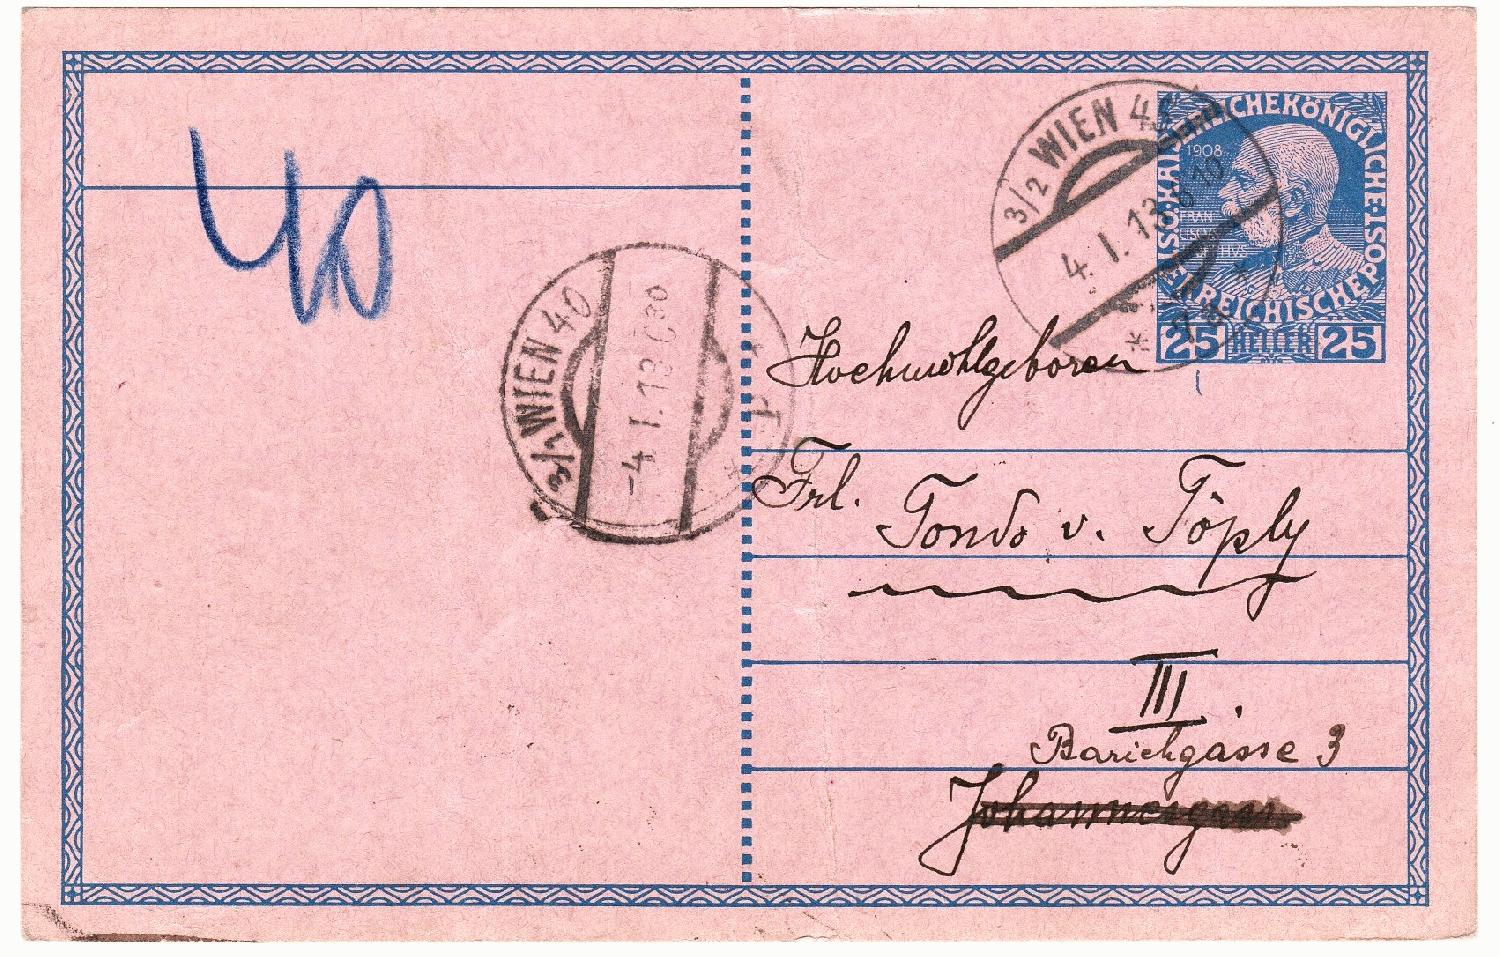 40
3/2 WIEN 4
4. I. 13
KAISERLICHEKÖNIGLICHE·
ÖSTERREICHISCHE POST
1908
FRAN
25 HELLER 25
3/1 WIEN 40
-4. I. 13
P
Hochwohlgeboren
Frl. Tonds v. Töply
III.
Barichgasse 3
Johannesgasse